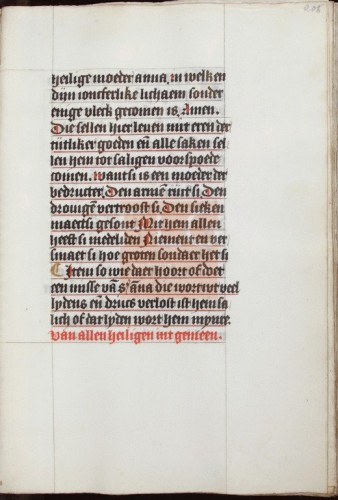 heilige moeder anna, in welken
dijn ioncferlike lichaem sonder
enige vleck gecomen is, Amen.
Die sellen hier leuen mit eren der
titliker goeden en̄ alle saken sel
len hem tot saligen voorspoede
comen. want si is een moeder der
bedructer, Den armē rijct si, Den
drouigen vertroost si, Den sieken
maect si gesont Mit hem allen
heeft si medeliden Niement en ver
smaet si hoe groten sondaer het si
Item so wie daer hoort of doet
een misse vā s' āna die wort wt veel
lydens en̄ drucs verlost ist hem sa
lich of dat lyden wort hem mynre.
Van allen heiligen int gemeen.